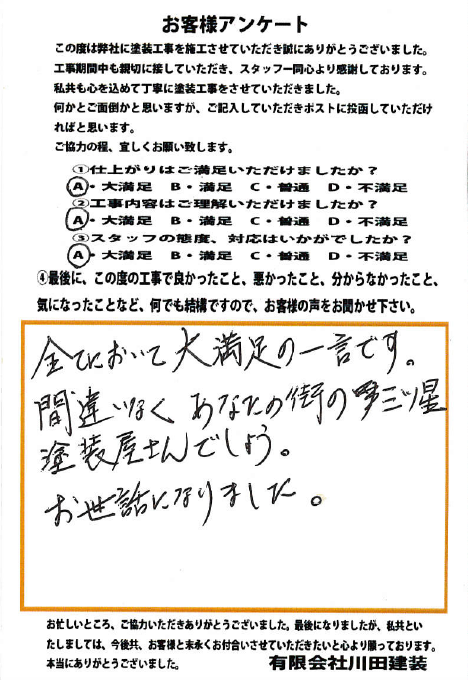 お客様アンケート
この度は弊社に塗装工事を施工させていただき誠にありがとうございました。
工事期間中も親切に接していただき、スタッフ一同心より感謝しております。
私共も心を込めて丁寧に塗装工事をさせていただきました。
何かとご面倒かと思いますが、ご記入していただきポストに投函していただけ
ればと思います。
ご協力の程、宜しくお願い致します。
①仕上がりはご満足いただけましたか?
A・大満足 B・満足 C・普通 D・不満足
②工事内容はご理解いただけましたか?
A・大満足 B・満足 C・普通 D・不満足
③スタッフの態度、対応はいかがでしたか?
A・大満足 B・満足 C・普通 D・不満足
④最後に、この度の工事で良かったこと、悪かったこと、分からなかったこと、
気になったことなど、何でも結構ですので、お客様の声をお聞かせ下さい。
全てにおいて大満足の一言です。
間違いなくあなたの街の三ツ星
塗装屋さんでしょう。
お世話になりました。
お忙しいところ、ご協力いただきありがとうございました。最後になりましたが、私共とい
たしましては、今後共、お客様と末永くお付合いさせていただきたいと心より願っております。
本当にありがとうございました。 有限会社川田建装